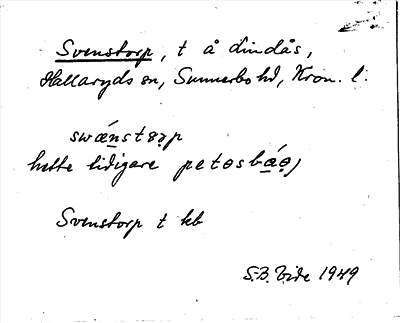 Svenstorp, t å Lindås,
Hallaryds sn, Sunnerbo hd, Kron. l.
swǽnstɵrp
hette tidigare petɵsbǻɵ)
Svenstorp t kb
S-B. Vide 1949